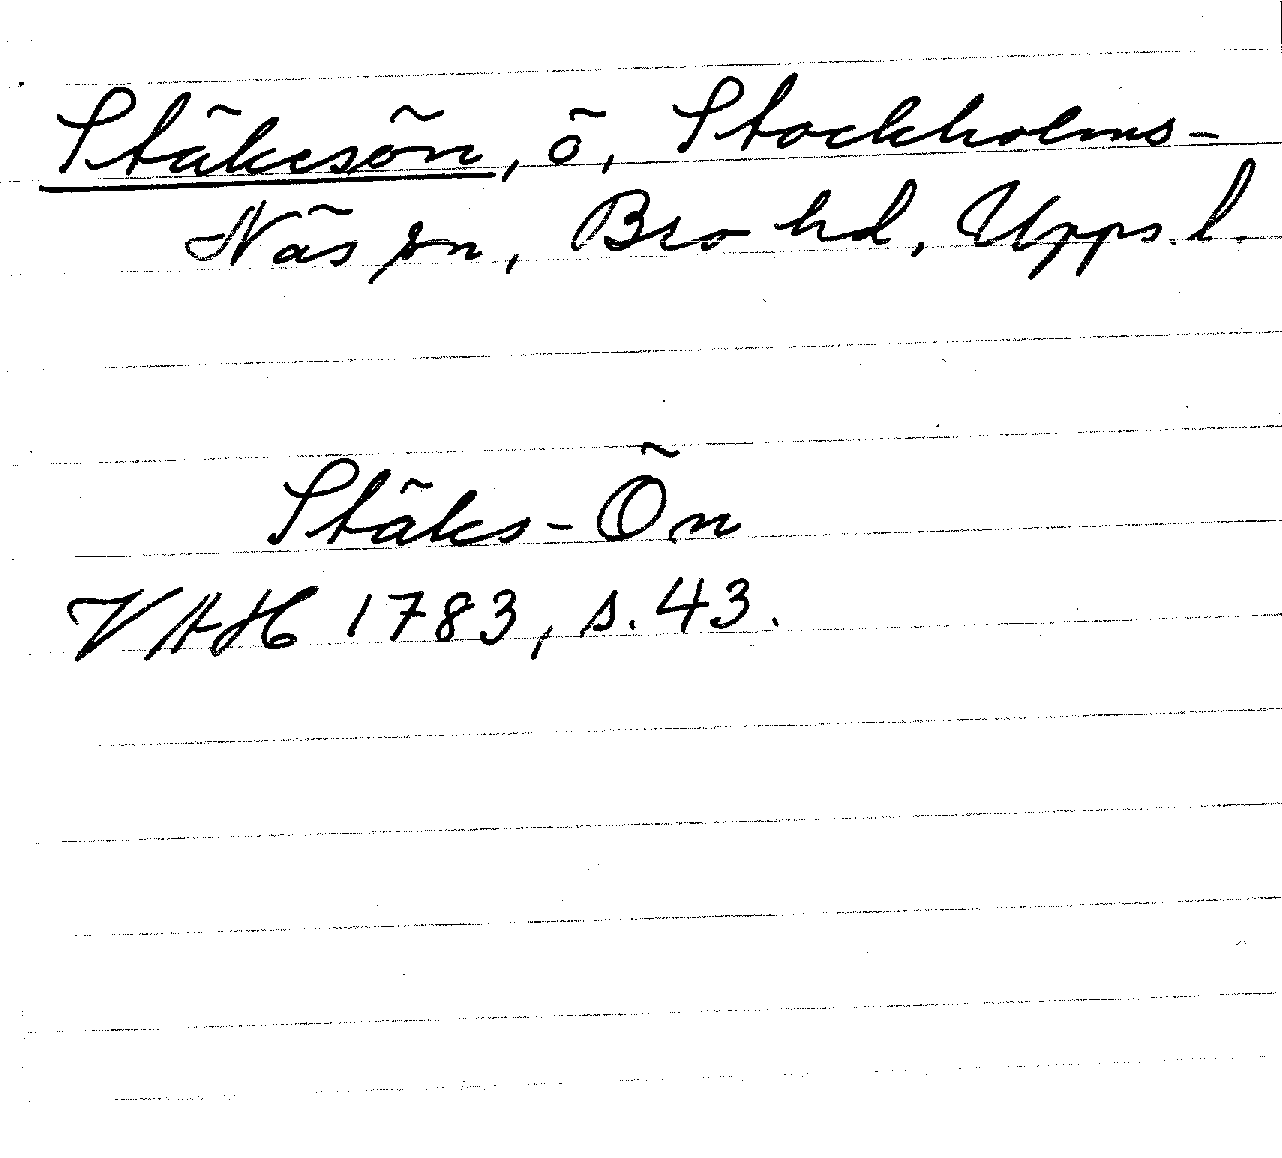 Stäksön, ö, Stockholms-
Näs sn, Bro hd, Upps. l.
Stäks-Ön
VAH 1783, s. 43.